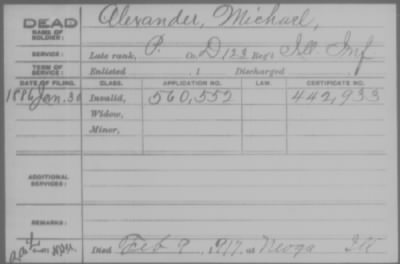 DEAD
NAME OF SOLDIER: Alexander, Michael,
SERVICE: Late rank, P. Co. D, 123 Reg't Ill. Inf
TERM OF SERVICE: Enlisted , 1 Discharged
DATE OF FILING. CLASS. APPLICATION NO. LAW. CERTIFICATE NO.
1886 Jan. 30 Invalid, 560,552 442,933
Widow,
Minor,
ADDITIONAL SERVICES:
REMARKS:
Died Feb 9, 1917, at Neoga Ill